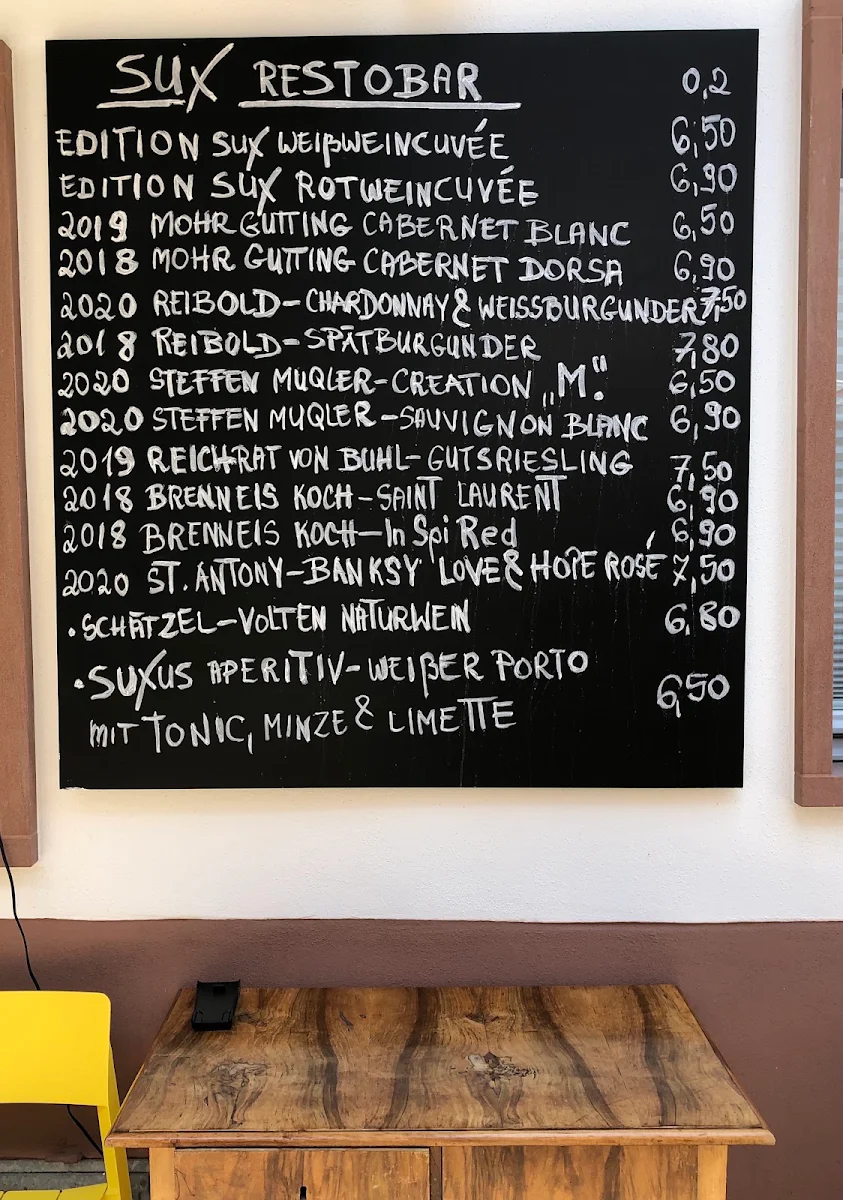 SUX RESTOBAR 0,2
EDITION SUX WEIßWEINCUVÉE 6,50
EDITION SUX ROTWEINCUVÉE 6,90
2019 MOHR GUTTING CABERNET BLANC 6,50
2018 MOHR GUTTING CABERNET DORSA 6,90
2020 REIBOLD-CHARDONNAY & WEISSBURGUNDER 7,50
2018 REIBOLD-SPÄTBURGUNDER 7,80
2020 STEFFEN MUGLER-CREATION „M." 6,50
2020 STEFFEN MUGLER-SAUVIGNON BLANC 6,90
2019 REICHRAT VON BUHL-GUTSRIESLING 7,50
2018 BRENNEIS KOCH-SAINT LAURENT 6,90
2018 BRENNEIS KOCH-In Spi Red 6,90
2020 ST. ANTONY-BANKSY LOVE & HOPE ROSÉ 7,50
• SCHÄTZEL-VOLTEN NATURWEIN 6,80
• SUXUS APERITIV-WEIßER PORTO
MIT TONIC, MINZE & LIMETTE 6,50